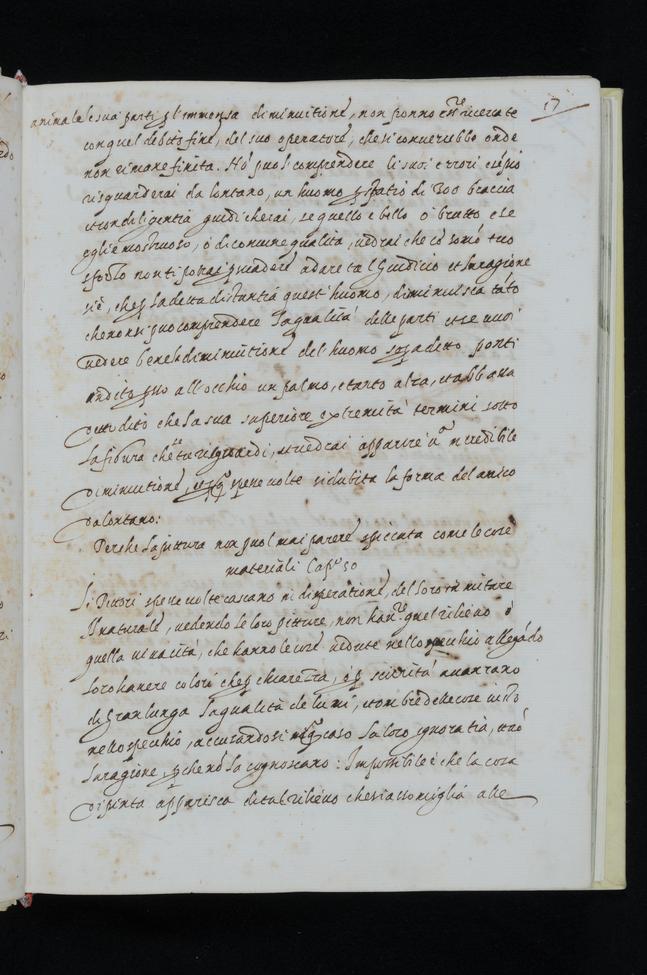 17
animale le sua parti p l'immensa diminuitione, non ponno esse ricercate
con quel debito fine, del suo operatore, che si converrebbe onde
non rimane finita. Ho puoi comprendere li suoi errori e se piu
risguarderai da lontano, un huomo p spatio di 300 braccia
e con diligentia giudicherai, se quello è bello o brutto e se
egli è mostruoso, o di comune qualita, vedrai che cō somō tuo
sforzo non ti potrai persuadere a dare tal Giudicio et la ragione
si è, che p la detta distantia quest'huomo, diminuisca tāto
che non si puo comprendere la qualità delle parti et se vuoi
vedere bene la diminuitione del huomo sopradetto ponti
un dito pso all'occhio un palmo, e tanto alza, et abbassa
detto dito che la sua superiore extremità termini sotto
la figura che tu risguardi, et vedrai apparire un incredibile
diminutione, et p spesse volte si dubita la forma del amico
da lontano:
Perche la pittura non puol mai parere spiccata come le cose
materiali Capo 50
Li Pittori spesse volte cascano in disperatione, del loro imitare
Il naturale, vedendo le loro pitture, non haver quel rilievo o
quella vivacità, che hanno le cose vedute nello specchio allegādo
loro havere colori che p chiarezza, o p scurità avanzano
di gran lunga la qualità de lumi, et ombre delle cose viste
nello specchio, accusando si in questo caso la loro ignorātia, et nō
la ragione, p che nō la cognoscano: Impossibile è che la cosa
dipinta apparisca di tal rilievo che s'assomiglia alle